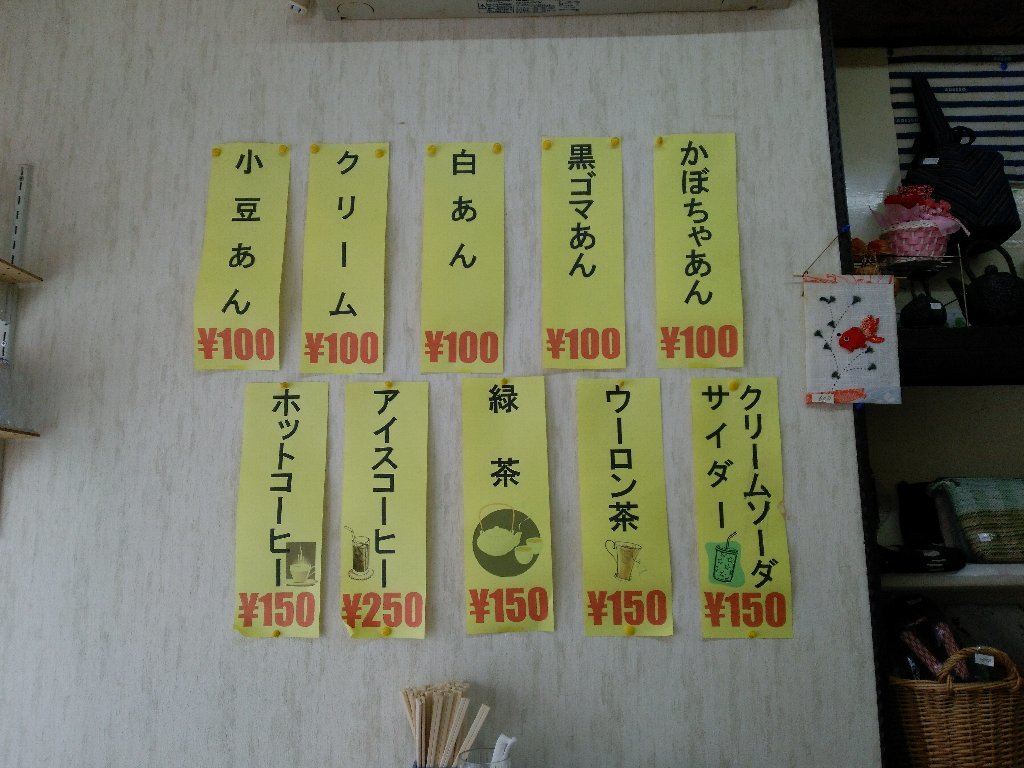 かぼちゃあん
¥100
黒ゴマあん
¥100
白あん
¥100
クリーム
¥100
小豆あん
¥100
クリームソーダ
サイダー
¥150
ウーロン茶
¥150
緑茶
¥150
アイスコーヒー
¥250
ホットコーヒー
¥150